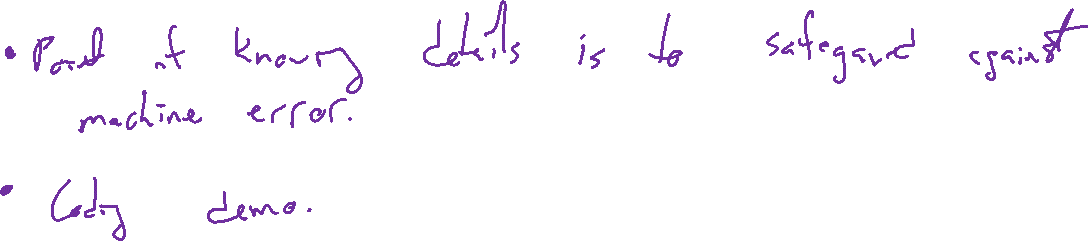 • Point of knowing details is to safegard against
machine error.
• Coding demo.